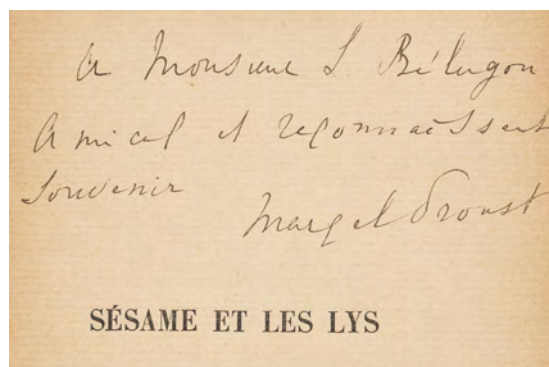 A Monsieur L. Bélugou
Amical et reconnaissant
souvenir
Marcel Proust
SÉSAME ET LES LYS